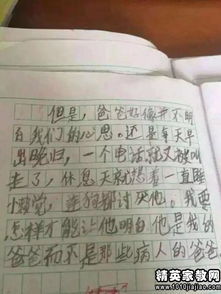 但是，爸爸好像并不明
白我们的心思。还是每天早
出晚归，一个电话就又被叫
走了，休息天就想着一直睡
懒觉，连狗都讨厌他。我要
怎样才能让他明白他是我的
爸爸而不是那些病人的爸爸
精英家教网
www.1010jiajiao.com